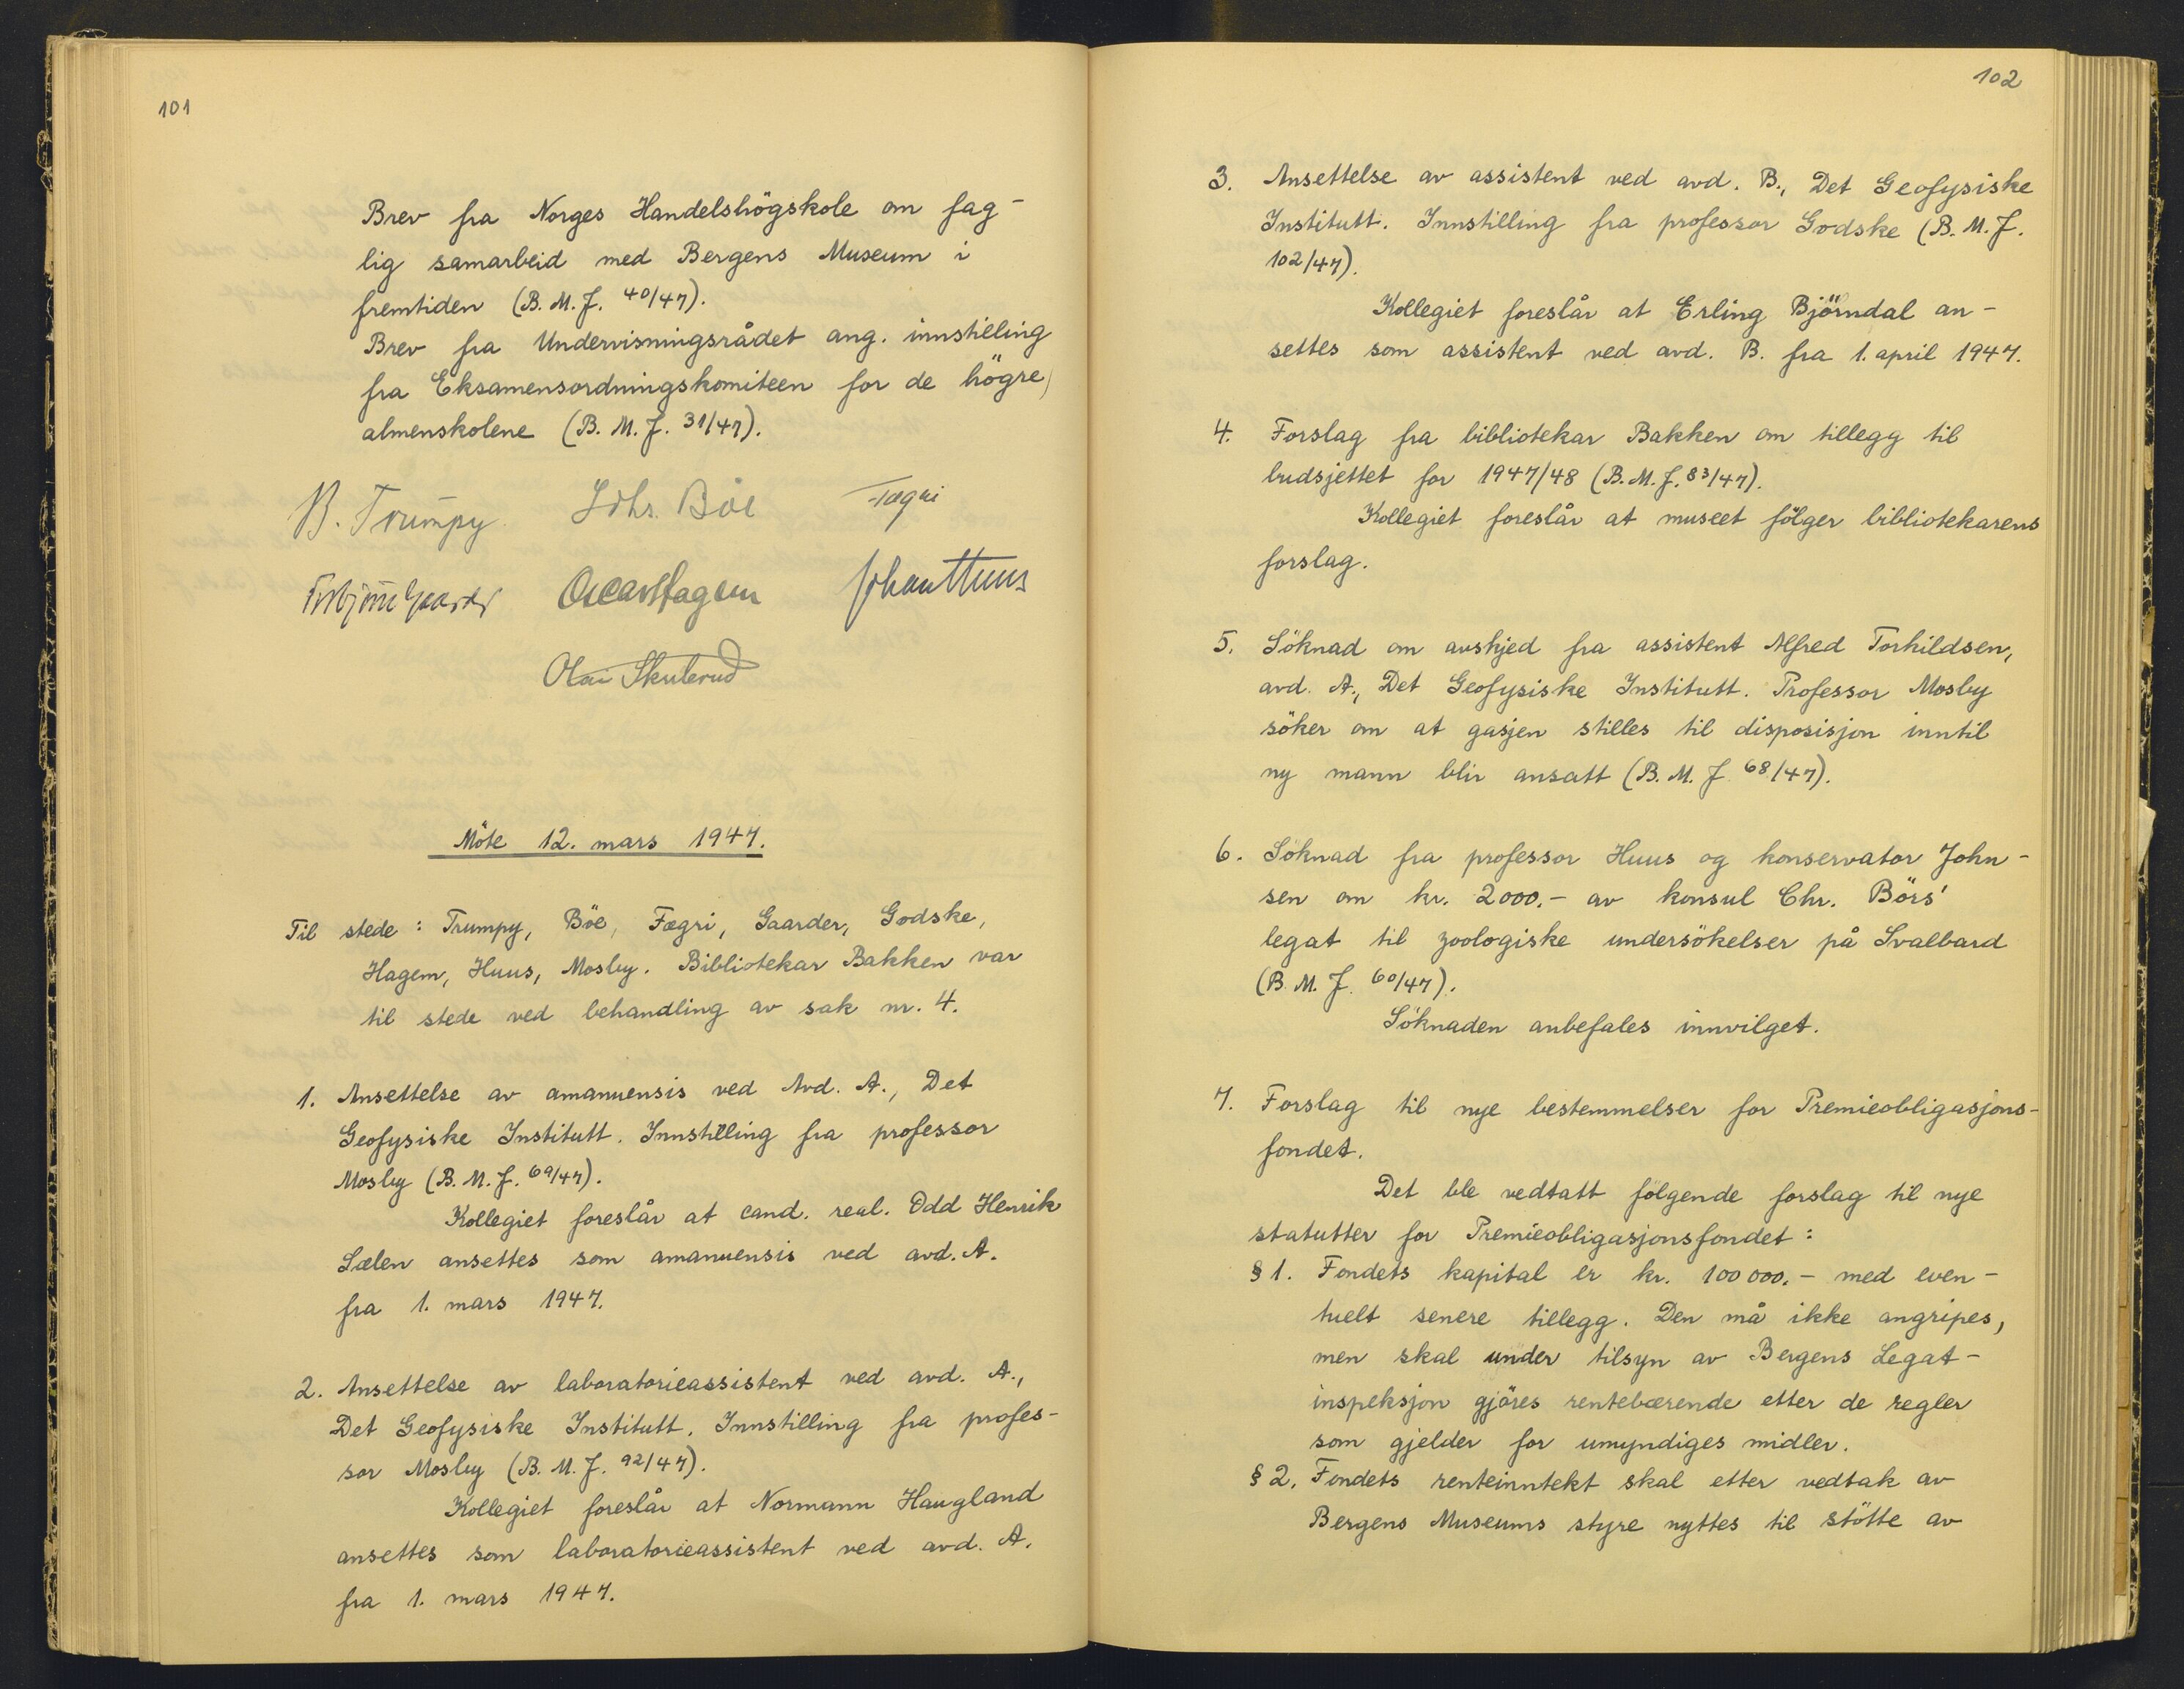 101
Brev fra Norges Handelshögskole om fag-
lig samarbeid med Bergens Museum i
fremtiden (B. M. J. 40/47).
Brev fra Undervisningsrådet ang. innstilling
fra Eksamensordningskomiteen for de högre
almenskolene (B. M. J. 31/47).
B. Trumpy Johs. Böe Fægri
Torbjörn Gaarder Oscar Hagem Johan Huus
Olai Skulerud
Möte 12. mars 1947.
Til stede: Trumpy, Böe, Fægri, Gaarder, Godske,
Hagem, Huus, Mosby. Bibliotekar Bakken var
til stede ved behandling av sak nr. 4.
1. Ansettelse av amanuensis ved Avd. A., Det
Geofysiske Institutt. Innstilling fra professor
Mosby (B. M. J. 69/47).
Kollegiet foreslår at cand. real. Odd Henrik
Sælen ansettes som amanuensis ved avd. A.
fra 1. mars 1947.
2. Ansettelse av laboratorieassistent ved avd. A.,
Det Geofysiske Institutt. Innstilling fra profes-
sor Mosby (B. M. J. 92/47).
Kollegiet foreslår at Normann Haugland
ansettes som laboratorieassistent ved avd. A.
fra 1. mars 1947.
102
3. Ansettelse av assistent ved avd. B., Det Geofysiske
Institutt. Innstilling fra professor Godske (B. M. J.
102/47).
Kollegiet foreslår at Erling Björndal an-
settes som assistent ved avd. B. fra 1. april 1947.
4. Forslag fra bibliotekar Bakken om tillegg til
budsjettet for 1947/48 (B. M. J. 83/47).
Kollegiet foreslår at museet fölger bibliotekarens
forslag.
5. Söknad om avskjed fra assistent Alfred Torkildsen,
avd. A., Det Geofysiske Institutt. Professor Mosby
söker om at gasjen stilles til disposisjon inntil
ny mann blir ansatt (B. M. J. 68/47).
6. Söknad fra professor Huus og konservator John-
sen om kr. 2000.- av konsul Chr. Börs'
legat til zoologiske undersökelser på Svalbard
(B. M. J. 60/47).
Söknaden anbefales innvilget.
7. Forslag til nye bestemmelser for Premieobligasjons-
fondet.
Det ble vedtatt fölgende forslag til nye
statutter for Premieobligasjonsfondet:
§ 1. Fondets kapital er kr. 100 000.- med even-
tuelt senere tillegg. Den må ikke angripes,
men skal under tilsyn av Bergens Legat-
inspeksjon gjöres rentebærende etter de regler
som gjelder for umyndiges midler.
§ 2. Fondets renteinntekt skal etter vedtak av
Bergens Museums styre nyttes til stötte av